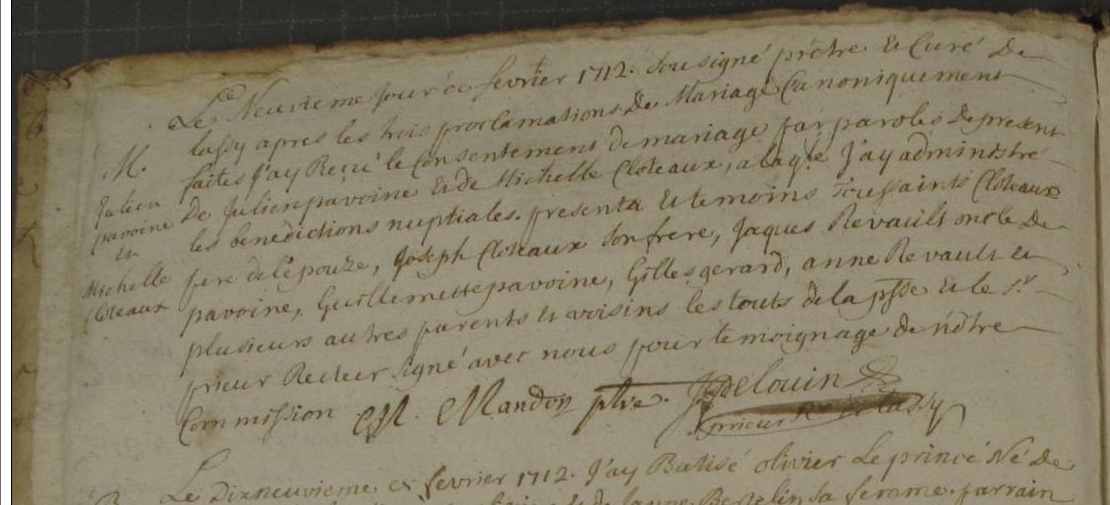 Le Neuvieme Jour de fevrier 1712. sousigné prêtre et Curé De
lassy apres les trois proclamations de Mariage Canoniquement
faites J'ay Reçu le Consentement de mariage par paroles de present
De Julien pavoine et de Michelle Cloteaux, J'ay administré
les benedictions nuptiales. presents et temoins Toussaints Cloteaux
pere de l'epouze, Joseph Cloteaux son frere, Jaques Revault oncle De
pavoine, Guillemette pavoine, Gilles gerard, anne Revault et
plusieurs autres parents et avoisins les touts de la psse et le Sr
prieur Recteur signé avec nous pour temoignage de nôtre
Commission M. Mandon ptre. J Delouin
prieur Rr de lassy
M.
Julien
pavoine
et
Michelle
Cloteaux
Le Dixneuvieme fevrier 1712. J'ay Batisé olivier Le prince Né de
sa femme. parrain